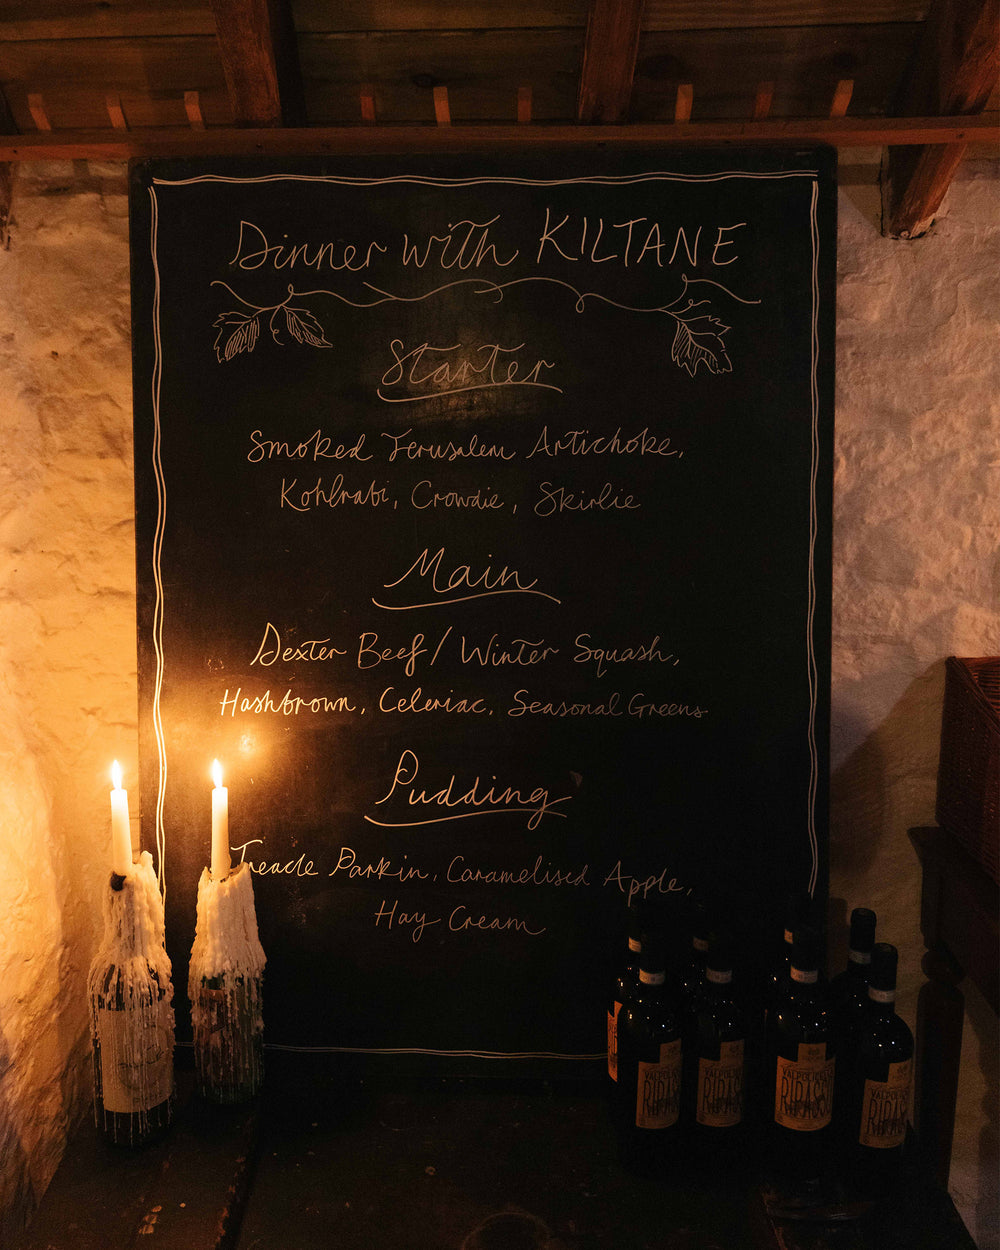 Dinner with KILTANE
Starter
Smoked Jerusalem Artichoke,
Kohlrabi, Crowdie, Skirlie
Main
Dexter Beef / Winter Squash,
Hashbrown, Celeriac, Seasonal Greens
Pudding
Treacle Parkin, Caramelised Apple,
Hay Cream
VALPOLICELLA
RIPASSO